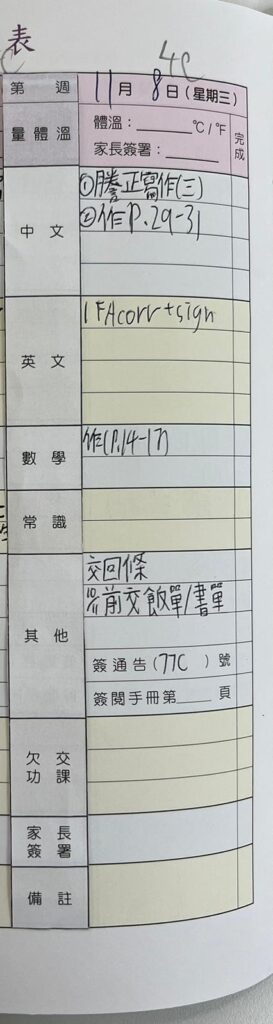 表
4C
第 週 11月 8日(星期三)
量體溫
體溫：______°C / °F
家長簽署：______
完成
中文
①謄正寫作(三)
②作P.29-31
英文
1 FA corr + sign
數學
作(P.14-17)
常識
其他
交回條
前交飯單/書單
簽通告(77C )號
簽閱手冊第____頁
欠交功課
家長簽署
備註